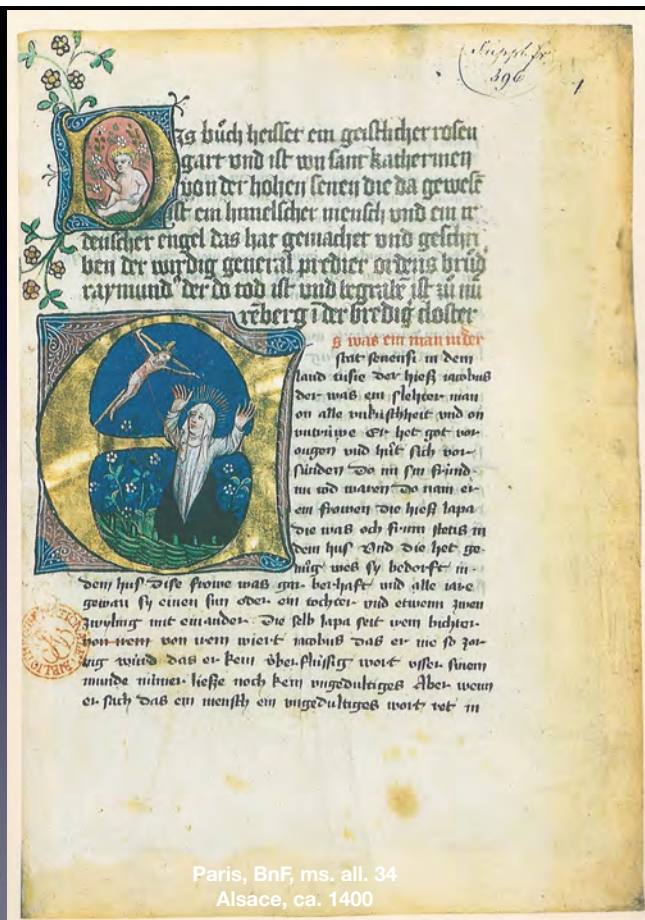 Suppl. fr.
396
1
Das bůch heisset ein geistlicher rosen
gart vnd ist von sant katherinen
von der hohen senen die da gewesē
ist ein himelscher mensch vnd ein ir
denscher engel das hat gemachet vnd geschri
ben der wirdig general predier ordens brůd
raymund der do tod ist vnd begrabē ist zů nů
rēberg ī der bredig closter
Es was ein man in der
stat senensi in dem
land tusie der hieß iacobus
der was ein slehter man
on alle vnkúschheit vnd on
vntrúwe Er het got vor
ougen vnd hůt sich vor
súnden Do im sin frúnd
tod waren Do nam er
ein frowen die hieß lapa
die was och frum stetis in
dem hus Vnd die het ge
nůg wes sy bedorft in
dem hus Dise frowe was gar berhaft vnd alle iare
gewan sy einen sun oder ein tochter vnd etwenn zwen
zwyling mit einander. Die selb lapa seit irem bichter
von irem von irem wiert iacobus das er nie so zor
nig wurd das er kein v̊berflússig wort vsser sinem
munde nimer liesse noch kein vngedultiges Aber wenn
er sach das ein mensch ein vngedultiges wort ret in
Paris, BnF, ms. all. 34
Alsace, ca. 1400